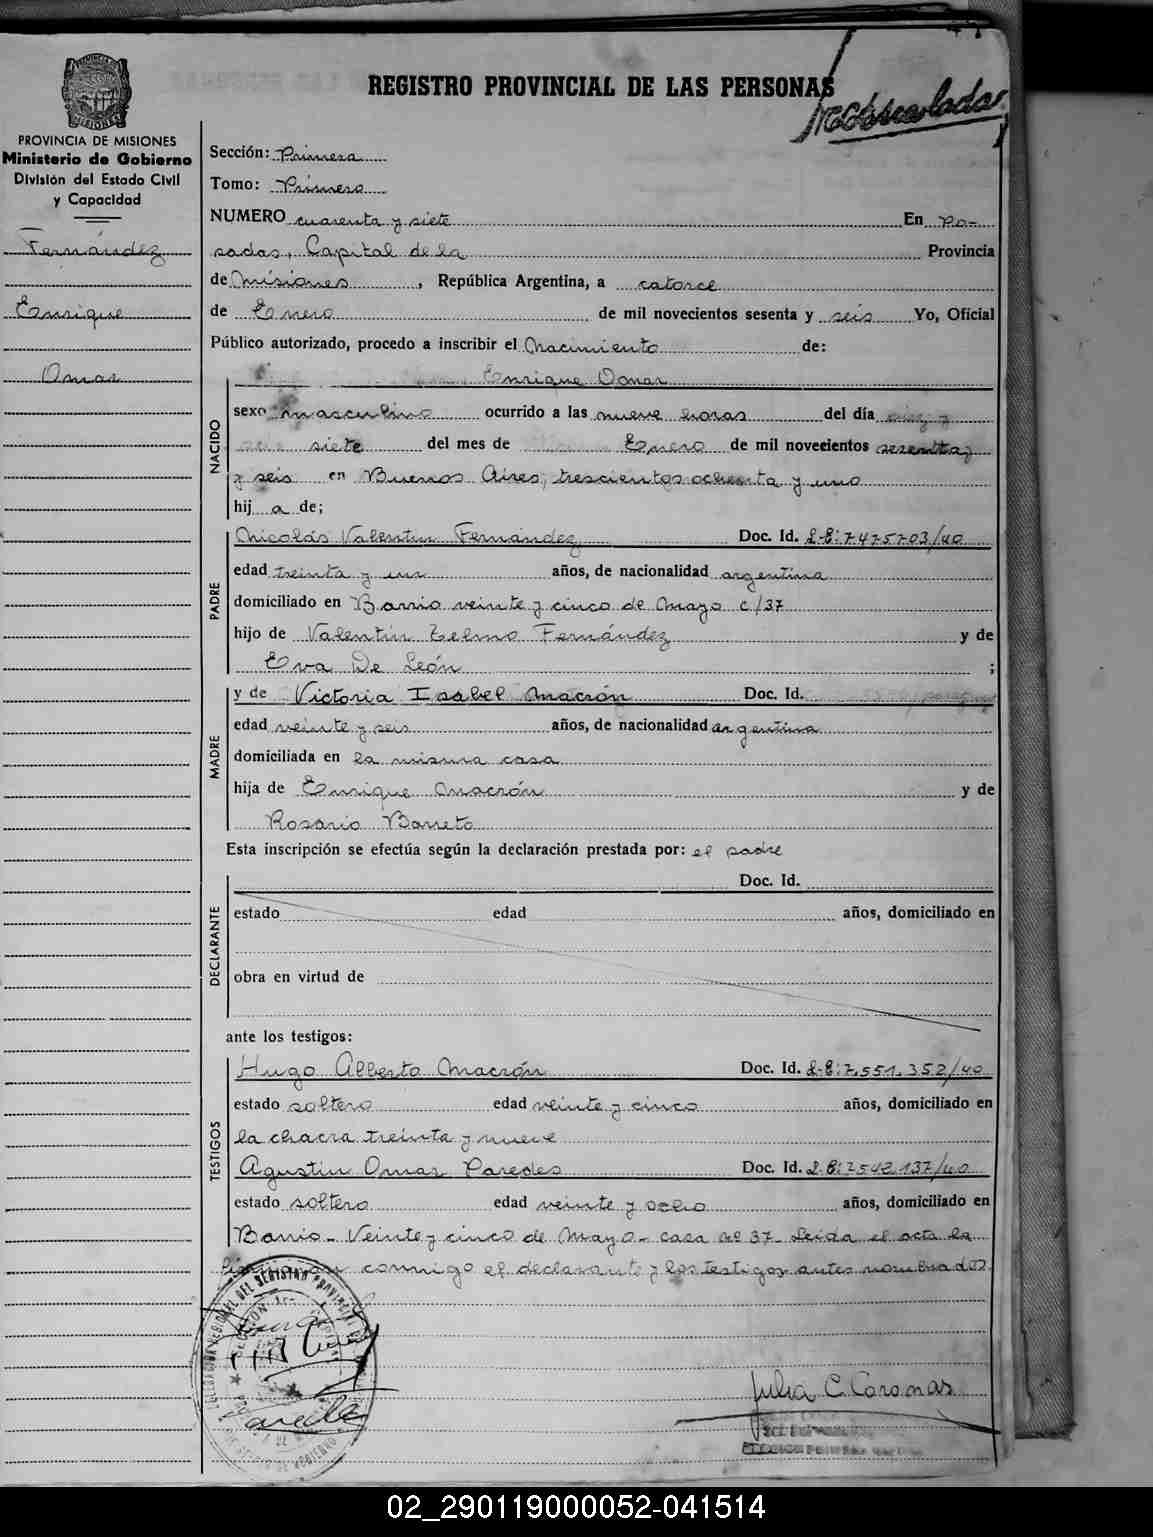 REGISTRO PROVINCIAL DE LAS PERSONAS
PROVINCIA DE MISIONES
Ministerio de Gobierno
División del Estado Civil
y Capacidad
Fernández
Enrique
Omar
Sección: Primera
Tomo: Primero
NUMERO cuarenta y siete En Po-
sadas, Capital de la Provincia
de Misiones, República Argentina, a catorce
de Enero de mil novecientos sesenta y seis Yo, Oficial
Público autorizado, procedo a inscribir el Nacimiento de:
Enrique Omar
NACIDO
sexo masculino ocurrido a las nueve horas del día
siete del mes de Enero de mil novecientos sesenta y
y seis en Buenos Aires, trescientos ochenta y uno
hij a de;
PADRE
Nicolás Valentin Fernández Doc. Id. L-E: 7475703/40
edad treinta y un años, de nacionalidad argentina
domiciliado en Barrio veinte y cinco de Mayo c/37
hijo de Valentín Telmo Fernández y de
Eva De León ;
MADRE
y de Victoria Isabel Macrón Doc. Id.
edad veinte y seis años, de nacionalidad argentina
domiciliada en la misma casa
hija de Enrique Macrón y de
Rosario Barreto
Esta inscripción se efectúa según la declaración prestada por: el padre
DECLARANTE
Doc. Id.
estado edad años, domiciliado en
obra en virtud de
ante los testigos:
TESTIGOS
Hugo Alberto Macrón Doc. Id. L-E: 7.551.352/40
estado soltero edad veinte y cinco años, domiciliado en
la chacra treinta y nueve
Agustin Omar Paredes Doc. Id. L.E: 7542137/40
estado soltero edad veinte y ocho años, domiciliado en
Barrio - Veinte y cinco de Mayo - casa nº 37 - Leida el acta la
conmigo el declarante y los testigos antes nombrados.
Julia C. Coronas
02_290119000052-041514